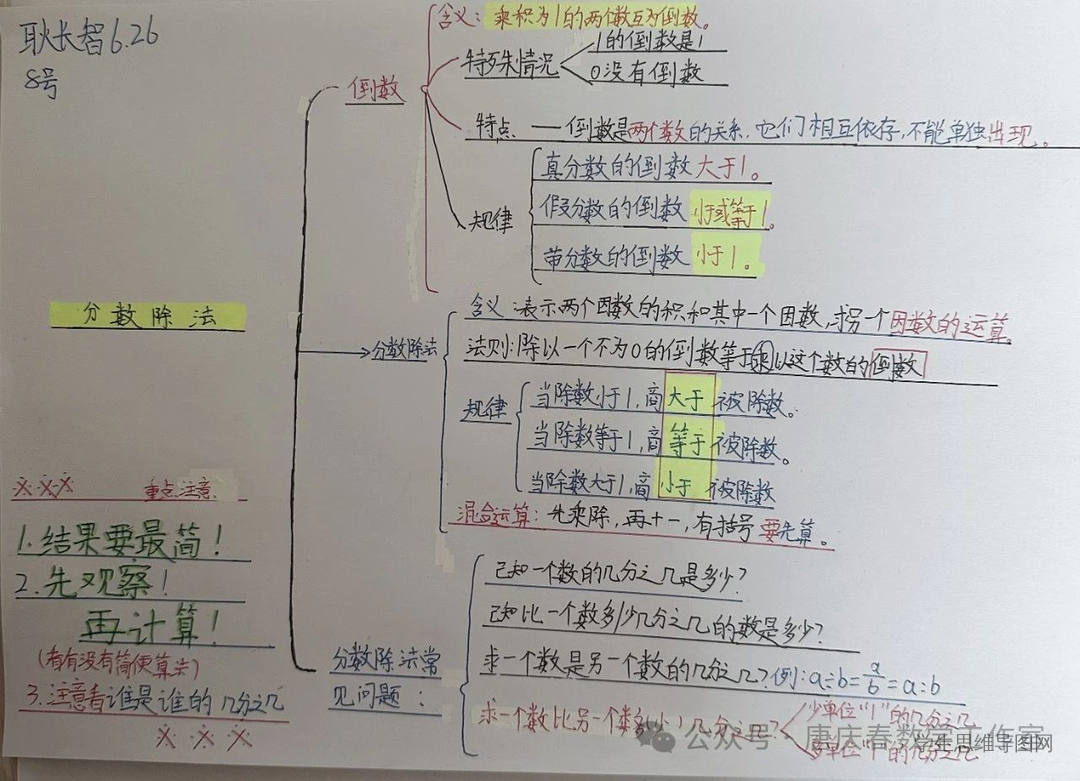 耿长智6.26
8号
分数除法
倒数
含义：乘积为1的两个数互为倒数。
特殊情况
1的倒数是1
0没有倒数
特点 — 倒数是两个数的关系，它们相互依存，不能单独出现。
规律
真分数的倒数大于1。
假分数的倒数小于或等于1。
带分数的倒数小于1。
分数除法
含义：表示两个因数的积和其中一个因数，求另一个因数的运算。
法则：除以一个不为0的倒数等于乘以这个数的倒数
规律
当除数小于1，商大于被除数。
当除数等于1，商等于被除数。
当除数大于1，商小于被除数
混合运算：先乘除，再十一，有括号要先算。
分数除法常
见问题：
已知一个数的几分之几是多少？
已知比一个数多/少几分之几的数是多少？
求一个数是另一个数的几分之几？例：a÷b=a/b=a:b
求一个数比另一个数多（少）几分之几？
少单位"1"的几分之几
多单位"1"的几分之几
※※※ 重点注意
1.结果要最简！
2.先观察！
再计算！
（看有没有简便算法）
3.注意看谁是谁的几分之几
※※※
公众号·唐庆春数学工作室
学生思维导图网